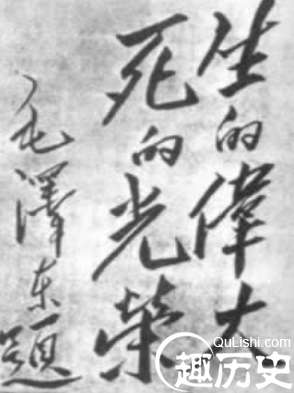 生的偉大
死的光榮
毛澤东題
QuLishi.com
趣历史